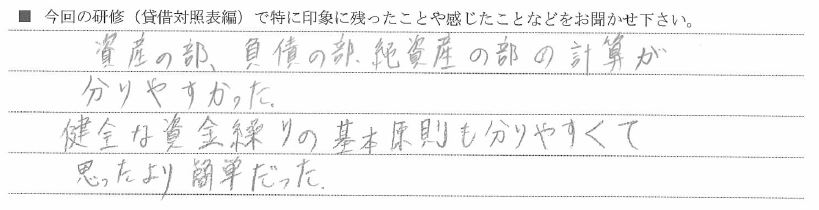 ■ 今回の研修（貸借対照表編）で特に印象に残ったことや感じたことなどをお聞かせ下さい。
資産の部、負債の部、純資産の部の計算が
分りやすかった。
健全な資金繰りの基本原則も分りやすくて
思ったより簡単だった。